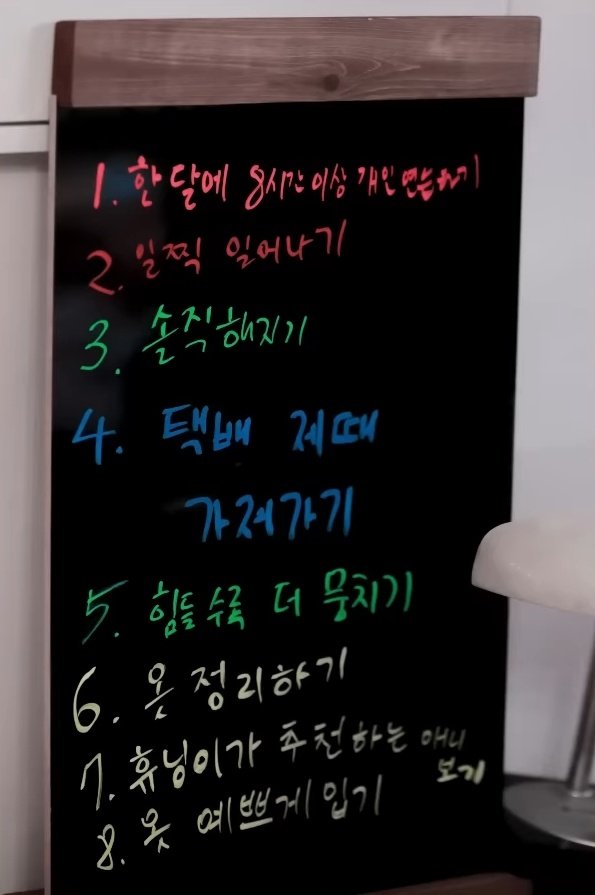 1. 한 달에 8시간 이상 개인 연습하기
2. 일찍 일어나기
3. 솔직해지기
4. 택배 제때
가져가기
5. 힘들수록 더 뭉치기
6. 옷 정리하기
7. 휴닝이가 추천하는 애니
보기
8. 옷 예쁘게 입기